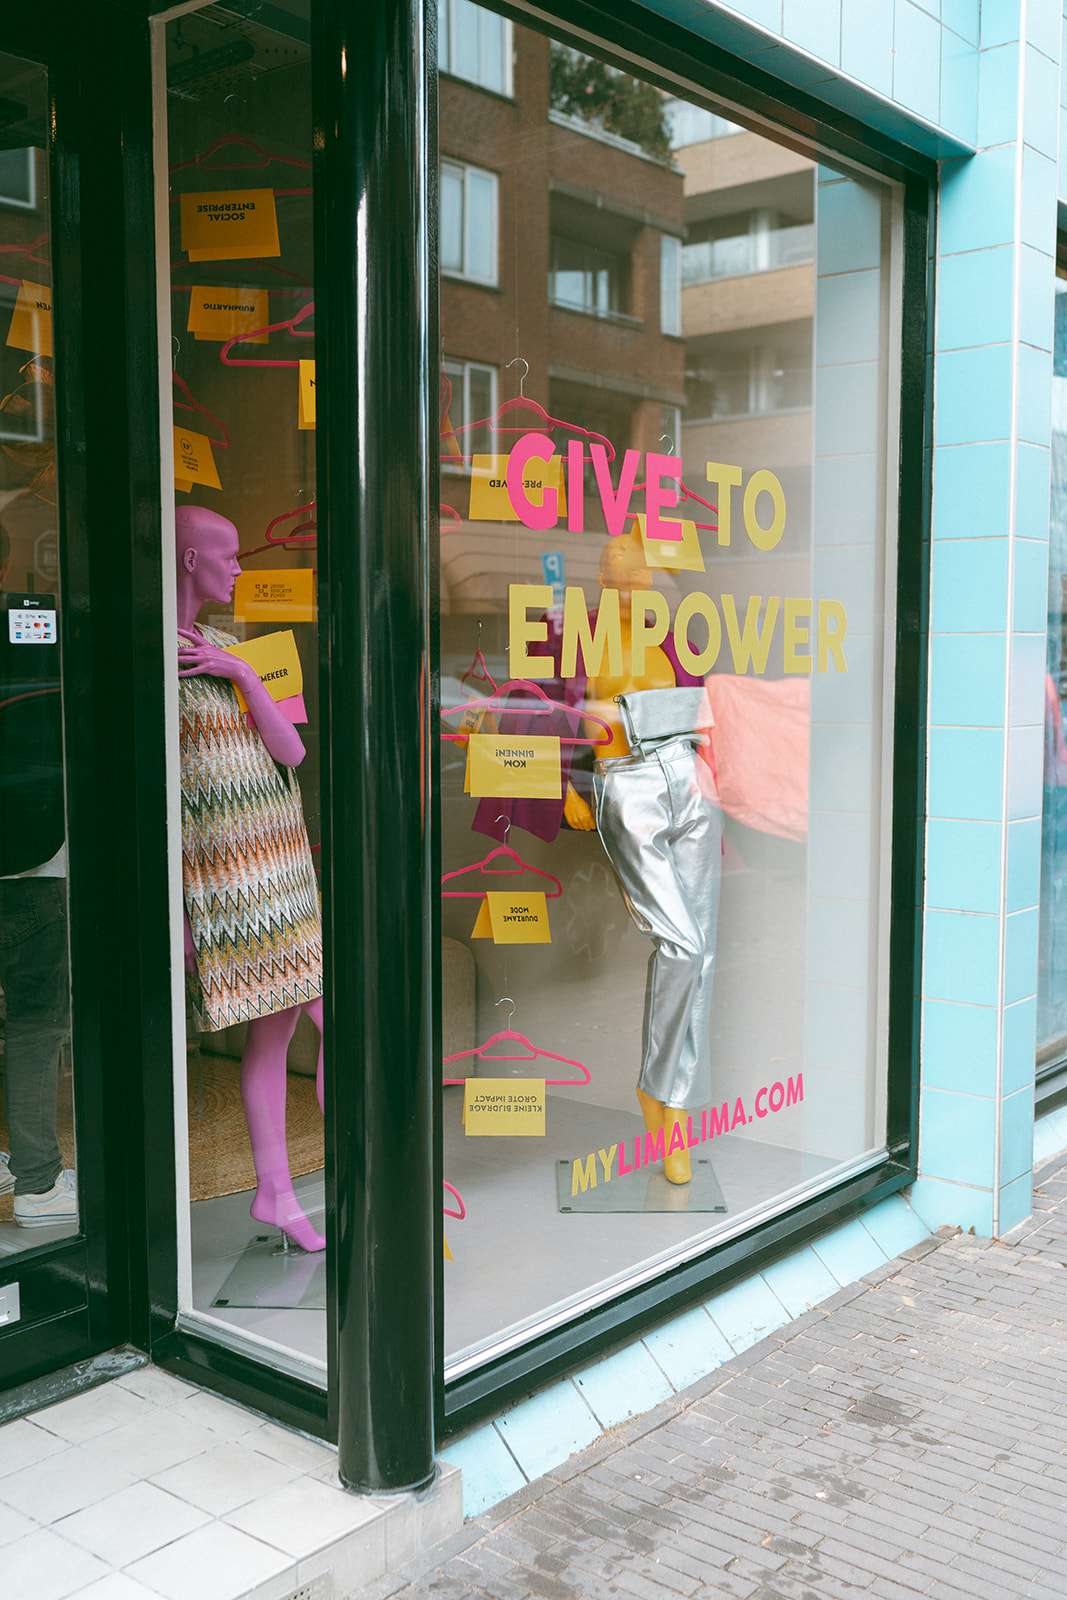 SOCIAL
ENTERPRISE
RUIMHARTIG
GIVE TO
EMPOWER
MEKEER
KOM
BINNEN!
DUURZAME
MODE
KLEINE BIJDRAGE
GROTE IMPACT
MYLIMALIMA.COM
P